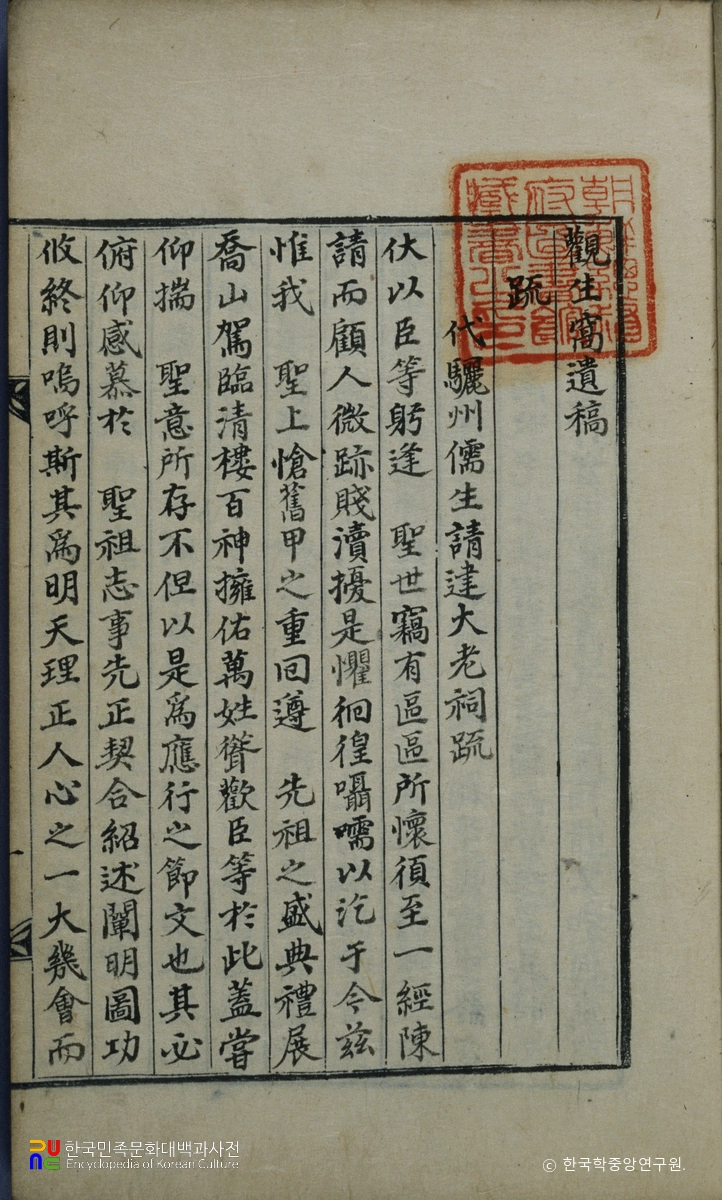 觀生窩遺稿
疏
代驪州儒生請建大老祠疏
伏以臣等躬逢 聖世竊有區區所懷須至一經陳
請而顧人微跡賤瀆擾是懼徊徨囁嚅以訖于今玆
惟我 聖上愴舊甲之重回遵 先祖之盛典禮展
喬山駕臨清樓百神擁佑萬姓聳歡臣等於此蓋嘗
仰揣 聖意所存不但以是爲應行之節文也其必
俯仰感慕於 聖祖志事先正契合紹述闡明圖功
攸終則嗚呼斯其爲明天理正人心之一大幾會而
한국민족문화대백과사전
Encyclopedia of Korean Culture
ⓒ 한국학중앙연구원.